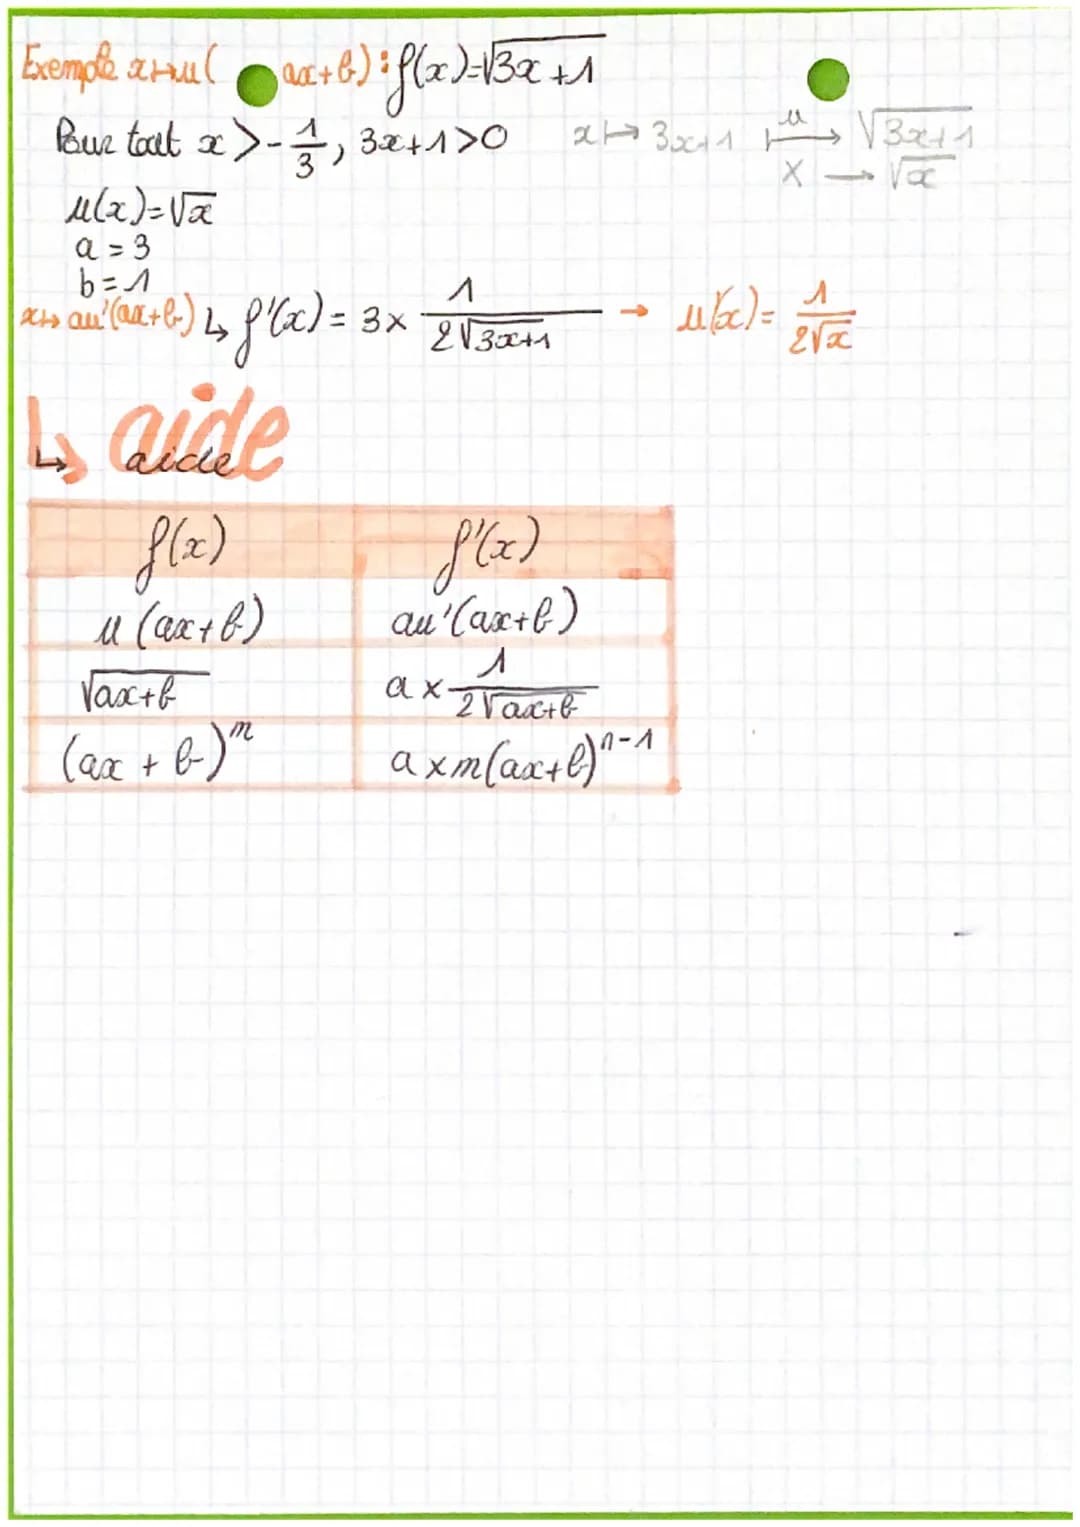 Exemple x↦u( ax+b) : f(x)=√3x+1
Pour tout x>-1/3, 3x+1>0 x↦3x+1 u↦ √3x+1
X → √x
u(x)=√x
a=3
b=1
x↦au'(ax+b) ↳ f'(x)= 3× 1/2√3x+1 → u'(x)= 1/2√x
↳ aide
↳ aide
f(x) f'(x)
u(ax+b) au'(ax+b)
√ax+b a× 1/2√ax+b
(ax+b)^n a×n(ax+b)^n-1